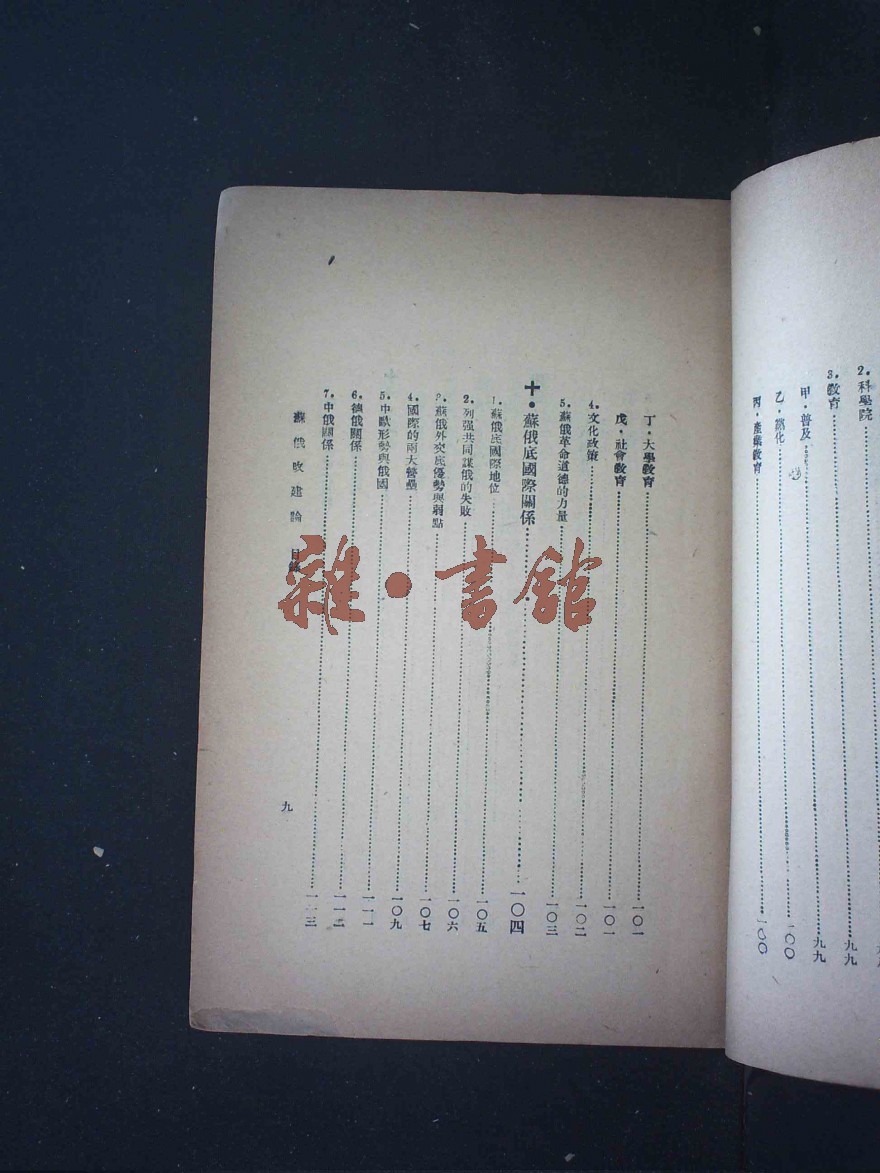 2．科學院
3．教育……九九
甲．普及……九九
乙．化……一〇〇
丙．產業教育……一〇〇
丁．大學教育……一〇一
戊．社會教育……一〇一
4．文化政策……一〇二
5．蘇俄革命道德的力量……一〇三
十．蘇俄底國際關係……一〇四
1．蘇俄底國際地位……一〇五
2．列强共同謀俄的失敗……一〇六
3．蘇俄外交底優勢與弱點……一〇七
4．國際的兩大營壘……一〇九
5．中歐形勢與俄國……一一一
6．德俄關係……一一二
7．中俄關係……一一三
蘇俄改建論 目錄
九
雜·書館